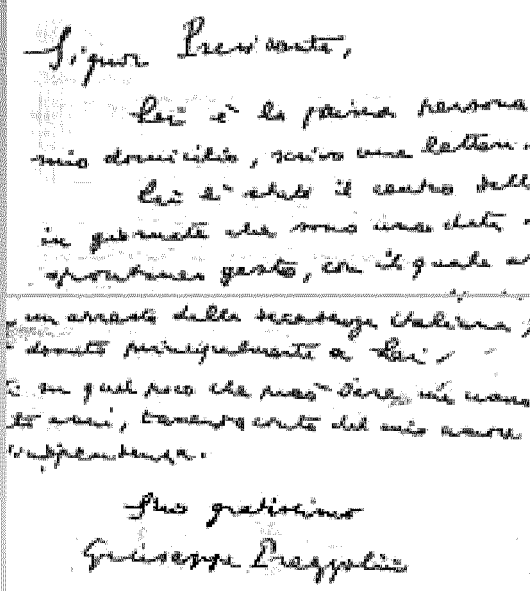 Signor Presidente,
Lei è la prima persona
mio domicilio, scrivo una lettera.
Lei è stato il centro dell
in giornate che sono una data
spontaneo gesto, con il quale
un arresto della decadenza italiana
dovuto principalmente a Lei
in quel poco che può dire un uomo
anni, tenendo conto del mio amore
indipendenza.
Suo gratissimo
Giuseppe Prezzolini